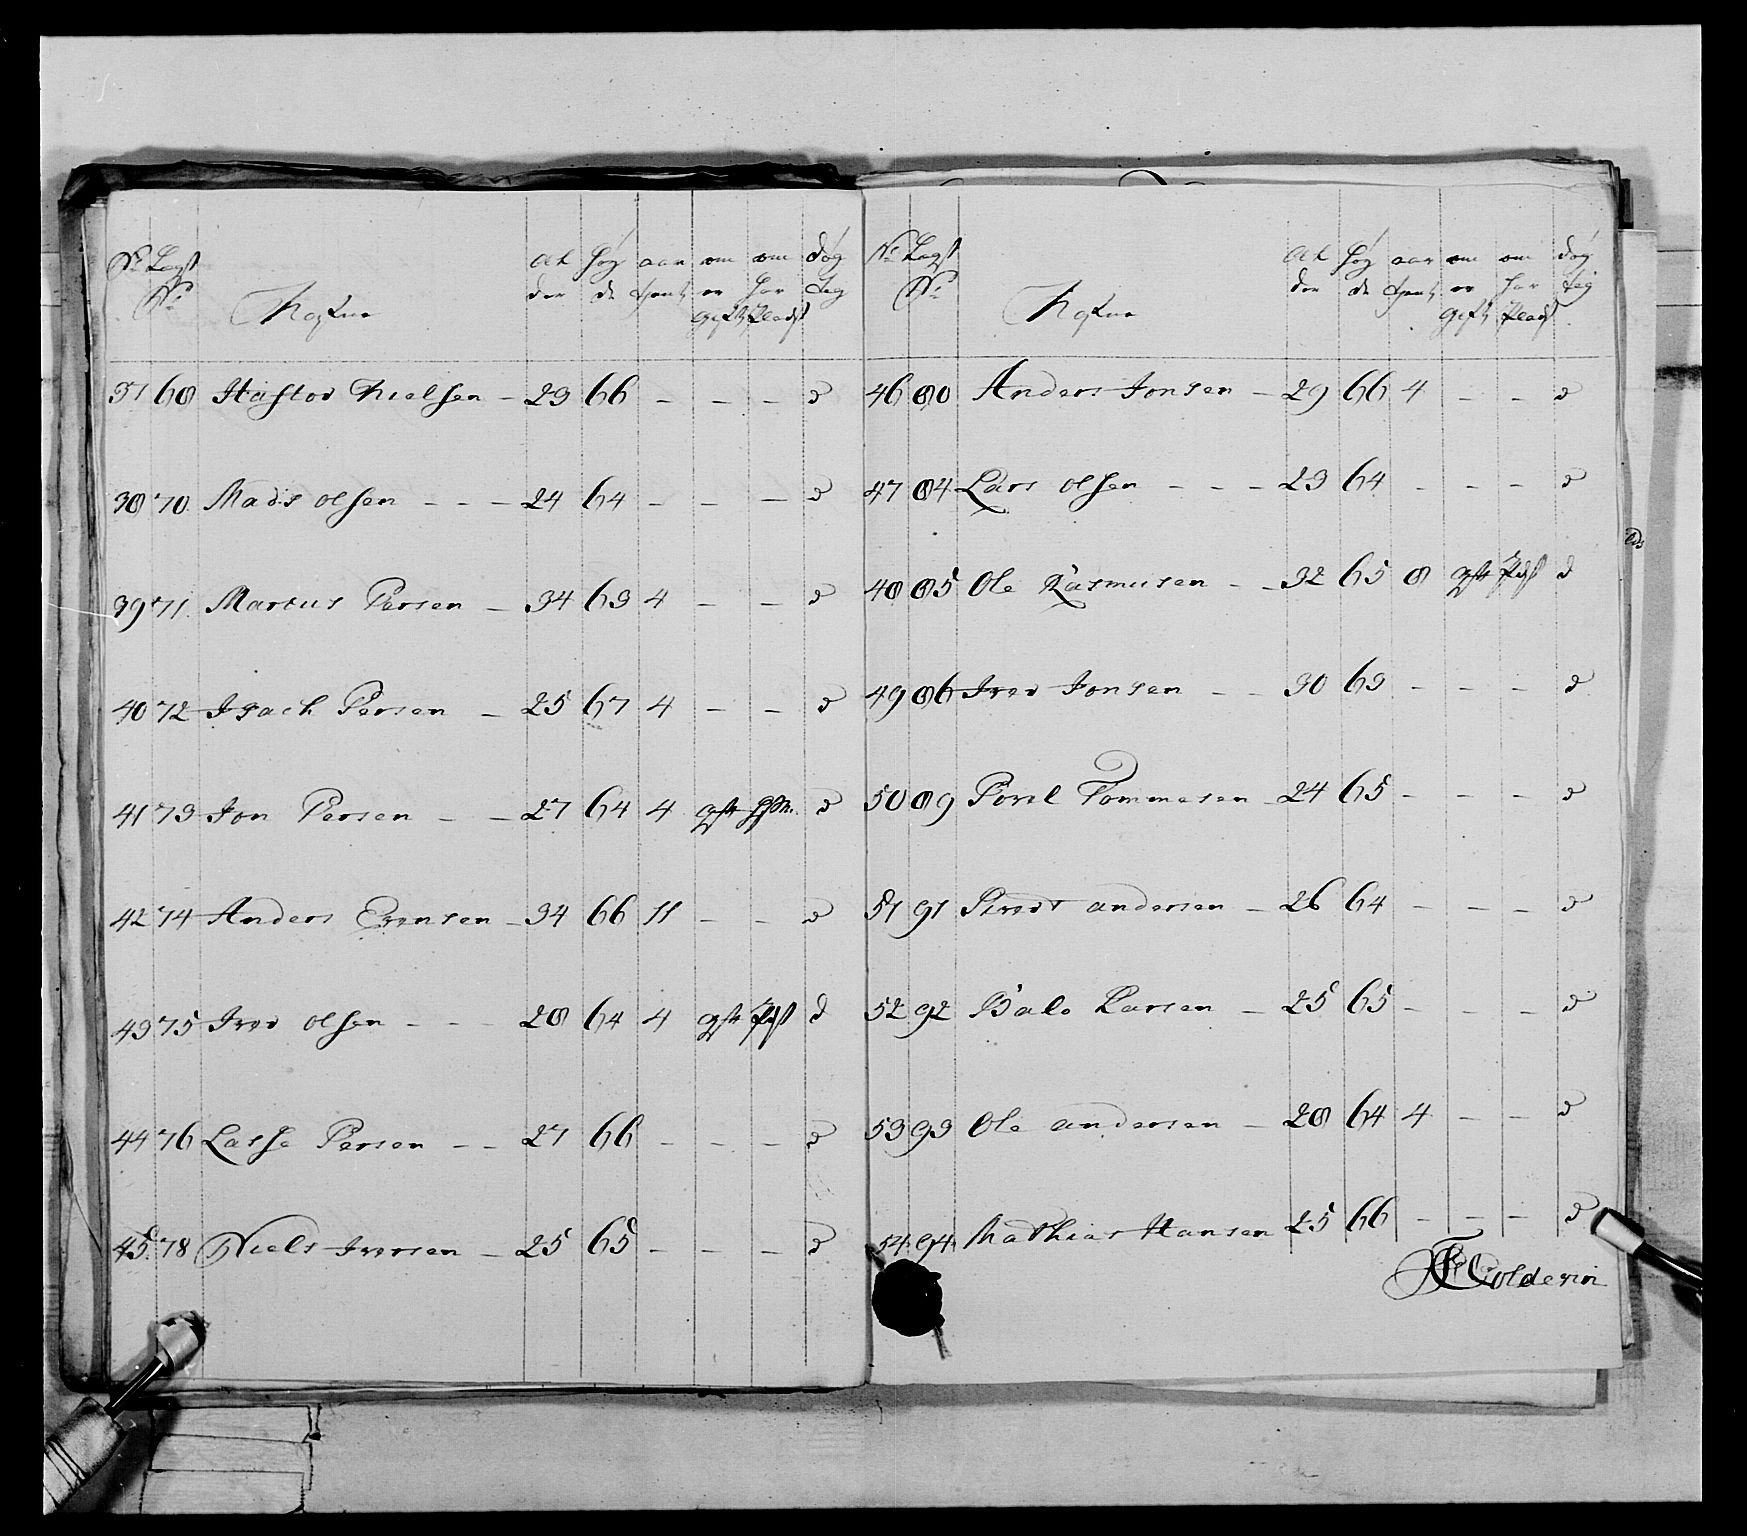 No Legd
No
Nafne
al
der
høy
de
aar
tient
om
er
gift
om
har
Plads
døg
tig
37 68 Hastor Nielsen - 29 66 - - - d
38 70 Mads olsen - - - 24 64 - - - d
39 71 Marcus Persen - 34 63 4 - - d
40 72 Isach Persen - 25 67 4 - - d
41 73 Jon Persen - - 27 64 4 gft d
42 74 Anders Evensen - 34 66 11 - - d
43 75 Iver olsen - - - 28 64 4 gft Pds d
44 76 Lasse Persen - - 27 66 - - - d
45 78 Niels Iversen - 25 65 - - - d
No Legd
No
Nafne
al
der
høy
de
aar
tient
om
er
gift
om
har
Plads
døg
tig
46 80 Anders Jonsen - 29 66 4 - - d
47 84 Lars olsen - - - 23 64 - - - d
48 85 Ole Rasmusen - - 32 65 8 gft Pds d
49 86 Iver Jonsen - - 30 63 - - - d
50 89 Povel Tommesen - 24 65 - - - d
51 91 Sivert andersen - 26 64 - - - d
52 92 Larsen - 25 65 - - - d
53 93 Ole andersen - 28 64 4 - - d
54 94 Mathias Hansen 25 66 - - - d
Coldevin